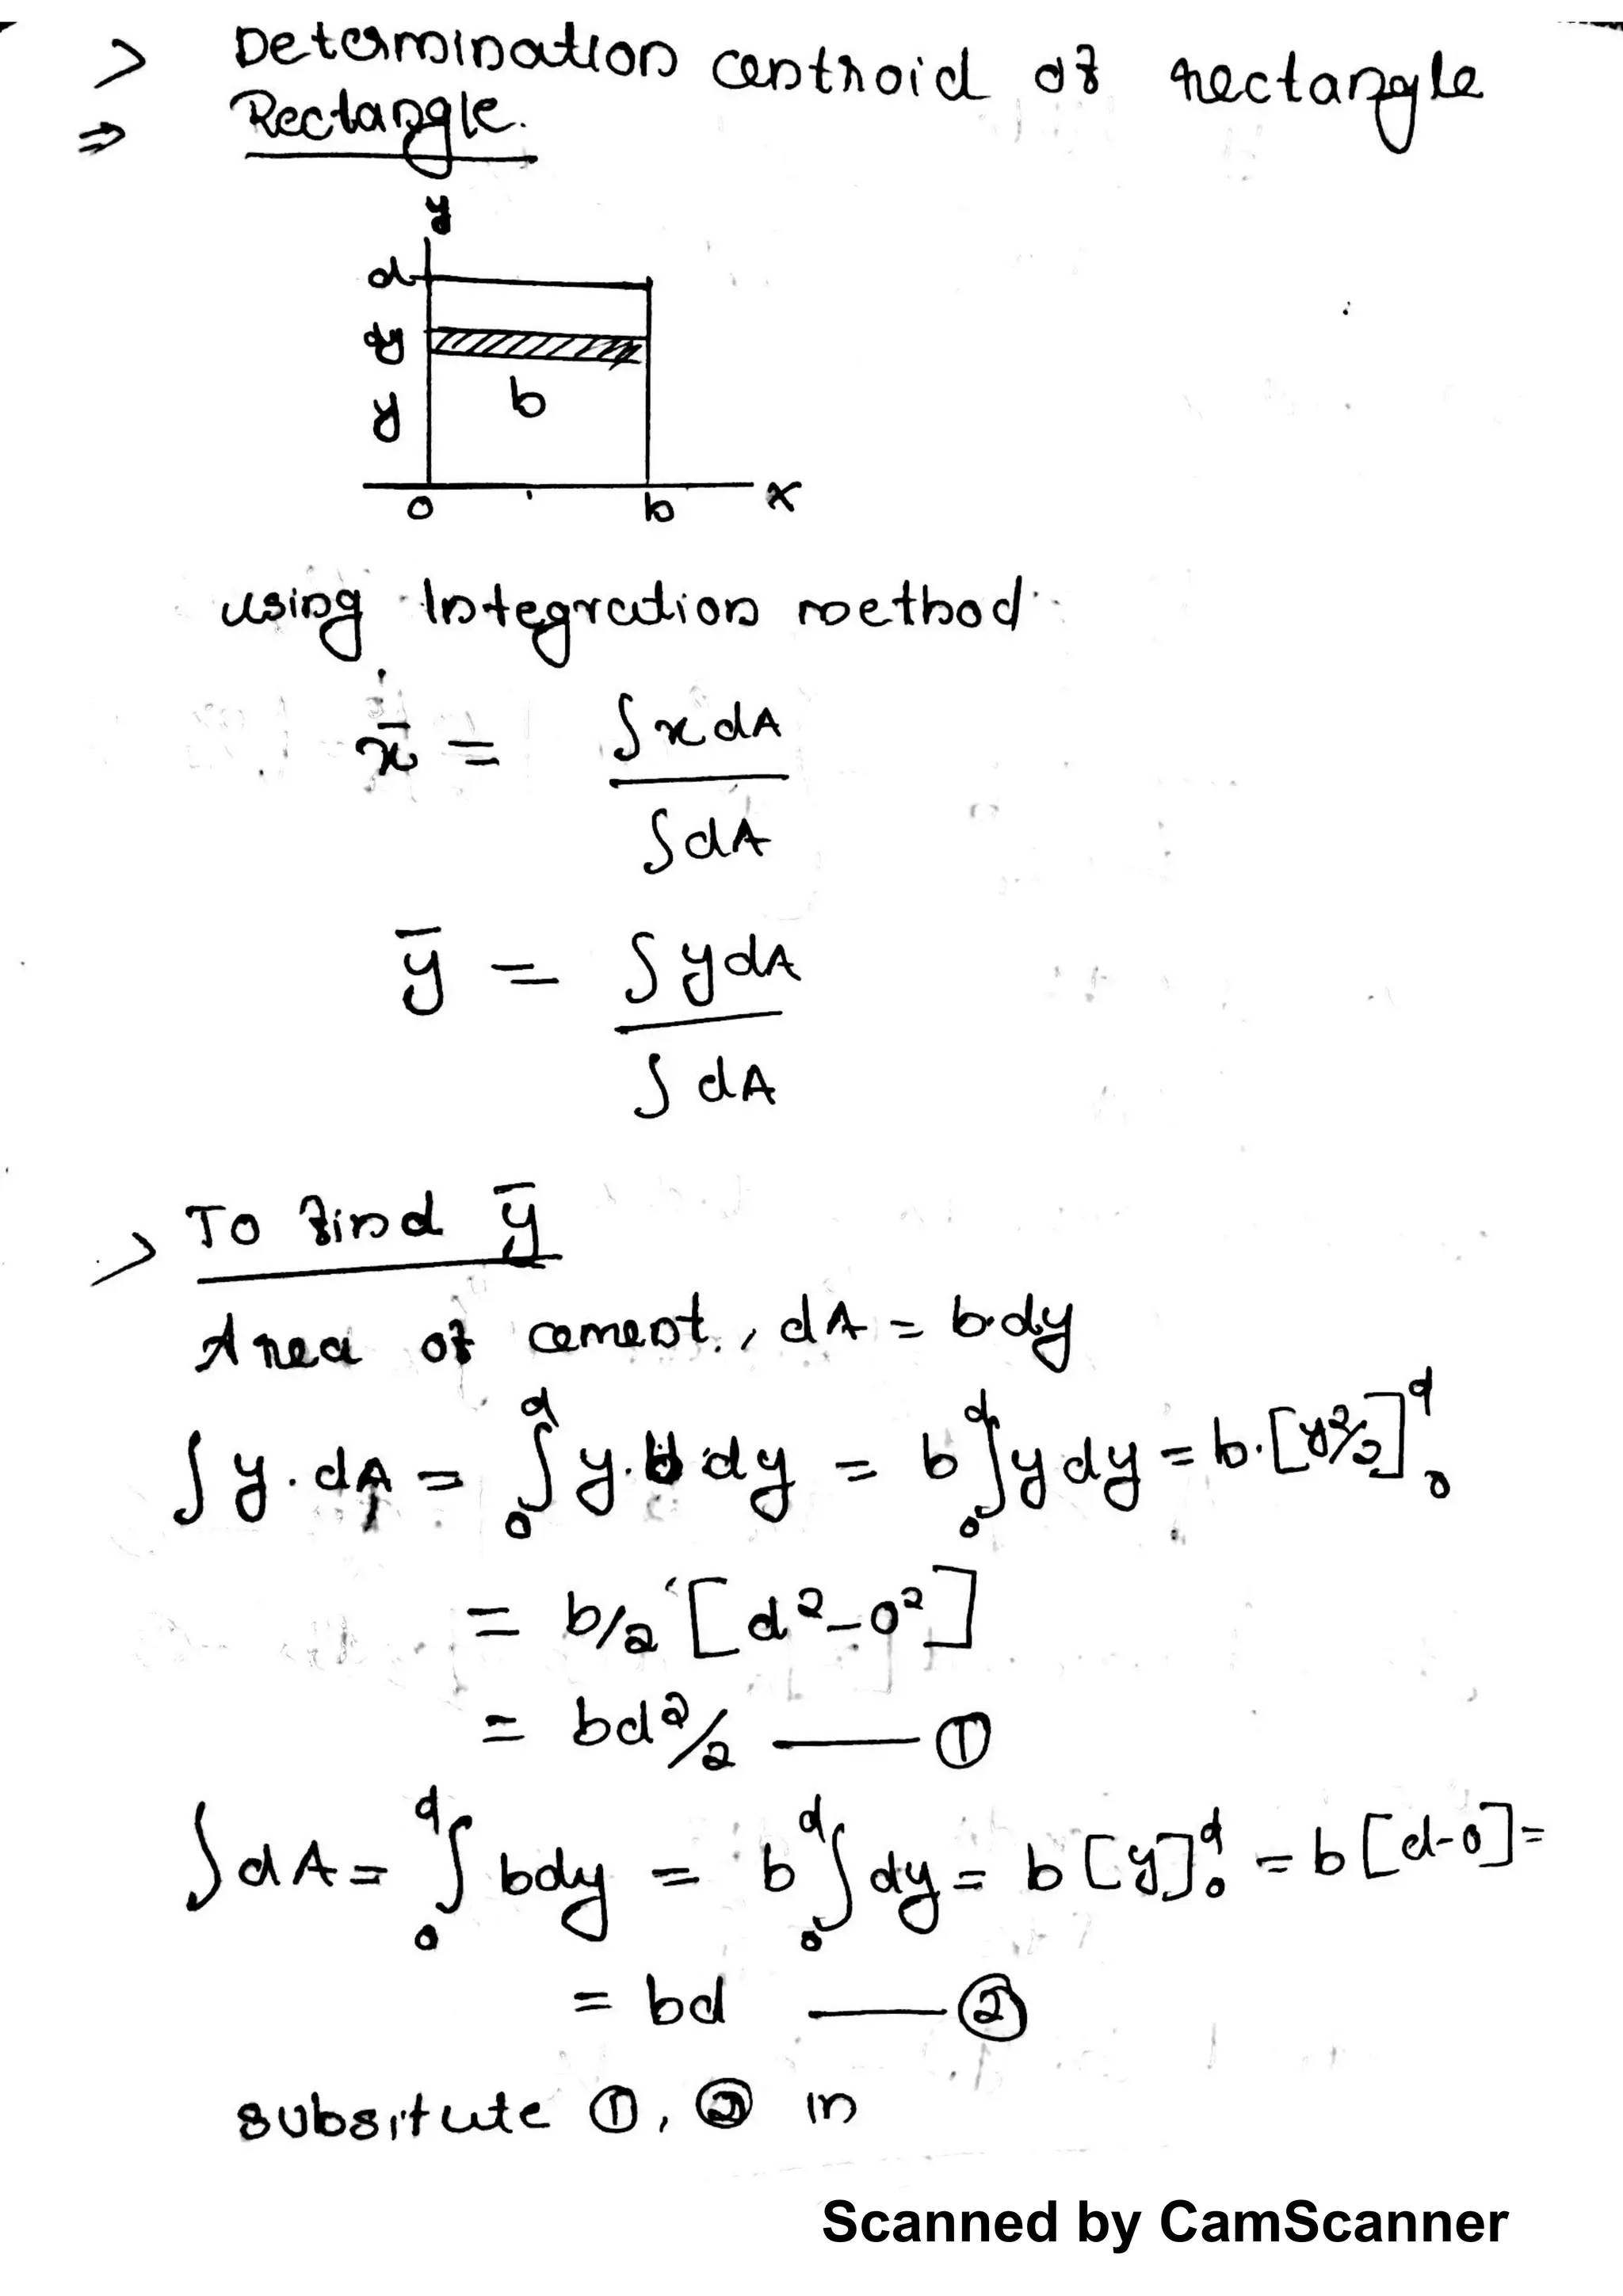 > Determination centroid of rectangle
⇒ Rectangle.
y
d
dy
y
b
0 b x
using Integration method
x̄ = ∫xdA / ∫dA
ȳ = ∫ydA / ∫dA
> To find ȳ
Area of cement., dA = b·dy
∫y·dA = ₀∫ᵈ y·b·dy = b ₀∫ᵈ y dy = b·[y²/2]ᵈ₀
= b/2 [d²-0²]
= bd²/2 —— ①
∫dA = ₀∫ᵈ bdy = b ₀∫ᵈ dy = b[y]ᵈ₀ = b[d-0] =
= bd —— ②
subsitute ①, ② in
Scanned by CamScanner